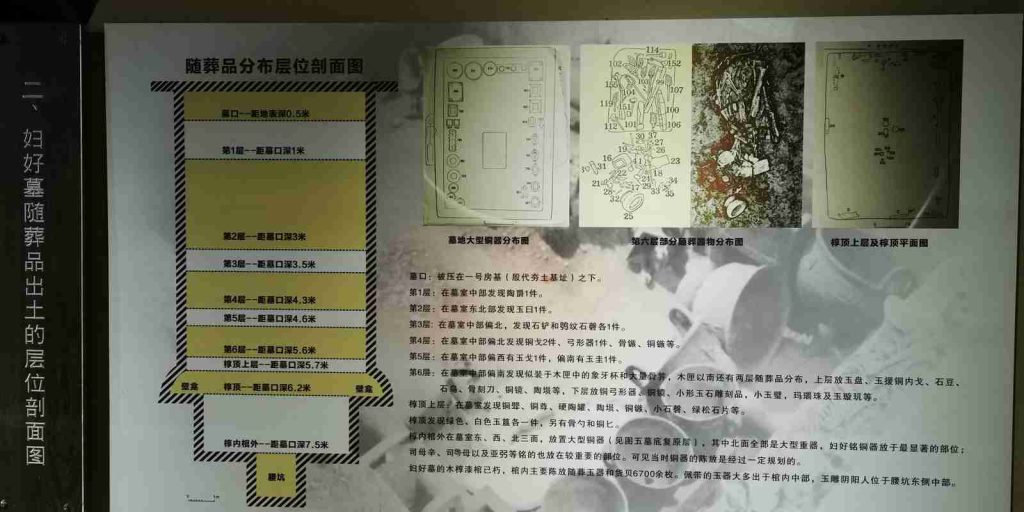 二、妇好墓随葬品出土的层位剖面图
随葬品分布层位剖面图
墓口--距地表深0.5米
第1层--距墓口深1米
第2层--距墓口深3米
第3层--距墓口深3.5米
第4层--距墓口深4.3米
第5层--距墓口深4.6米
第6层--距墓口深5.6米
椁顶上层--距墓口深5.7米
壁龛
椁顶--距墓口深6.2米
壁龛
椁内棺外--距墓口深7.5米
腰坑
墓地大型铜器分布图
第六层部分随葬器物分布图
椁顶上层及椁顶平面图
墓口：被压在一号房基（殷代夯土基址）之下。
第1层：在墓室中部发现陶爵1件。
第2层：在墓室东北部发现玉臼1件。
第3层：在墓室中部偏北，发现石铲和鸮纹石磬各1件。
第4层：在墓室中部偏北发现铜戈2件、弓形器1件、骨镞、铜镞等。
第5层：在墓室中部偏西有玉戈1件，偏南有玉圭1件。
第6层：在墓室中部偏南发现似装于木匣中的象牙杯和大量骨笄，木匣以南还有两层随葬品分布，上层放玉盘、玉援铜内戈、石豆、
石鸟、骨刻刀、铜镜、陶埙等，下层放铜弓形器、铜镜、小形玉石雕刻品，小玉璧，玛瑙珠及玉璇玑等。
椁顶上层：在墓室发现铜斝、铜尊、硬陶罐、陶埙、铜镞、小石磬、绿松石片等。
椁顶发现绿色、白色玉簋各一件，另有骨勺和铜匕。
椁内棺外在墓室东、西、北三面，放置大型铜器（见图五墓底复原层），其中北面全部是大型重器，妇好铭铜器放于最显著的部位；
司母辛、司𡥈母以及亚弜等铭的也放在较重要的部位。可见当时铜器的陈放是经过一定规划的。
妇好墓的木椁漆棺已朽，棺内主要陈放随葬玉器和货贝6700余枚。佩带的玉器大多出于棺内中部，玉雕阴阳人位于腰坑东侧中部。